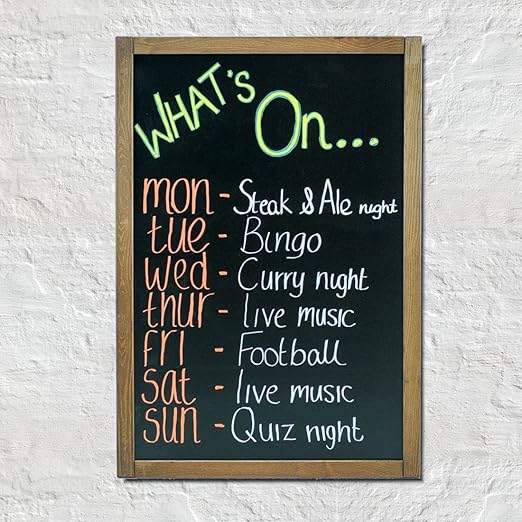 WHAT's On...
mon - Steak & Ale night
tue - Bingo
Wed - Curry night
thur - live music
fri - Football
sat - live music
sun - Quiz night